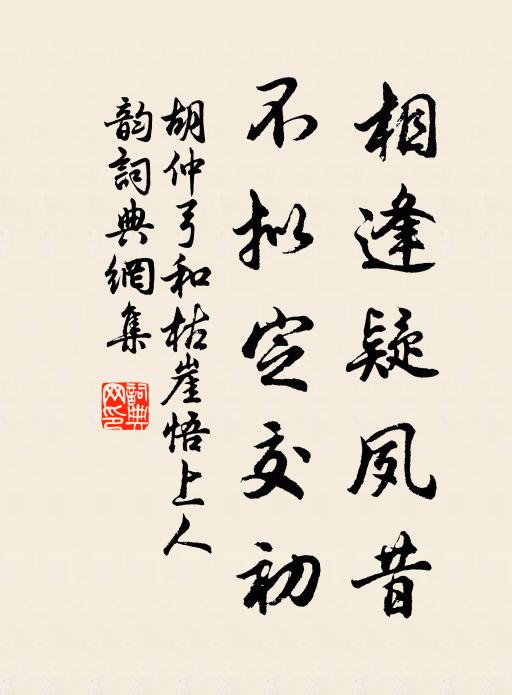 相逢疑夙昔
不拟定交初
胡仲弓和枯崖悟上人
韵詞典網集
詞典網印